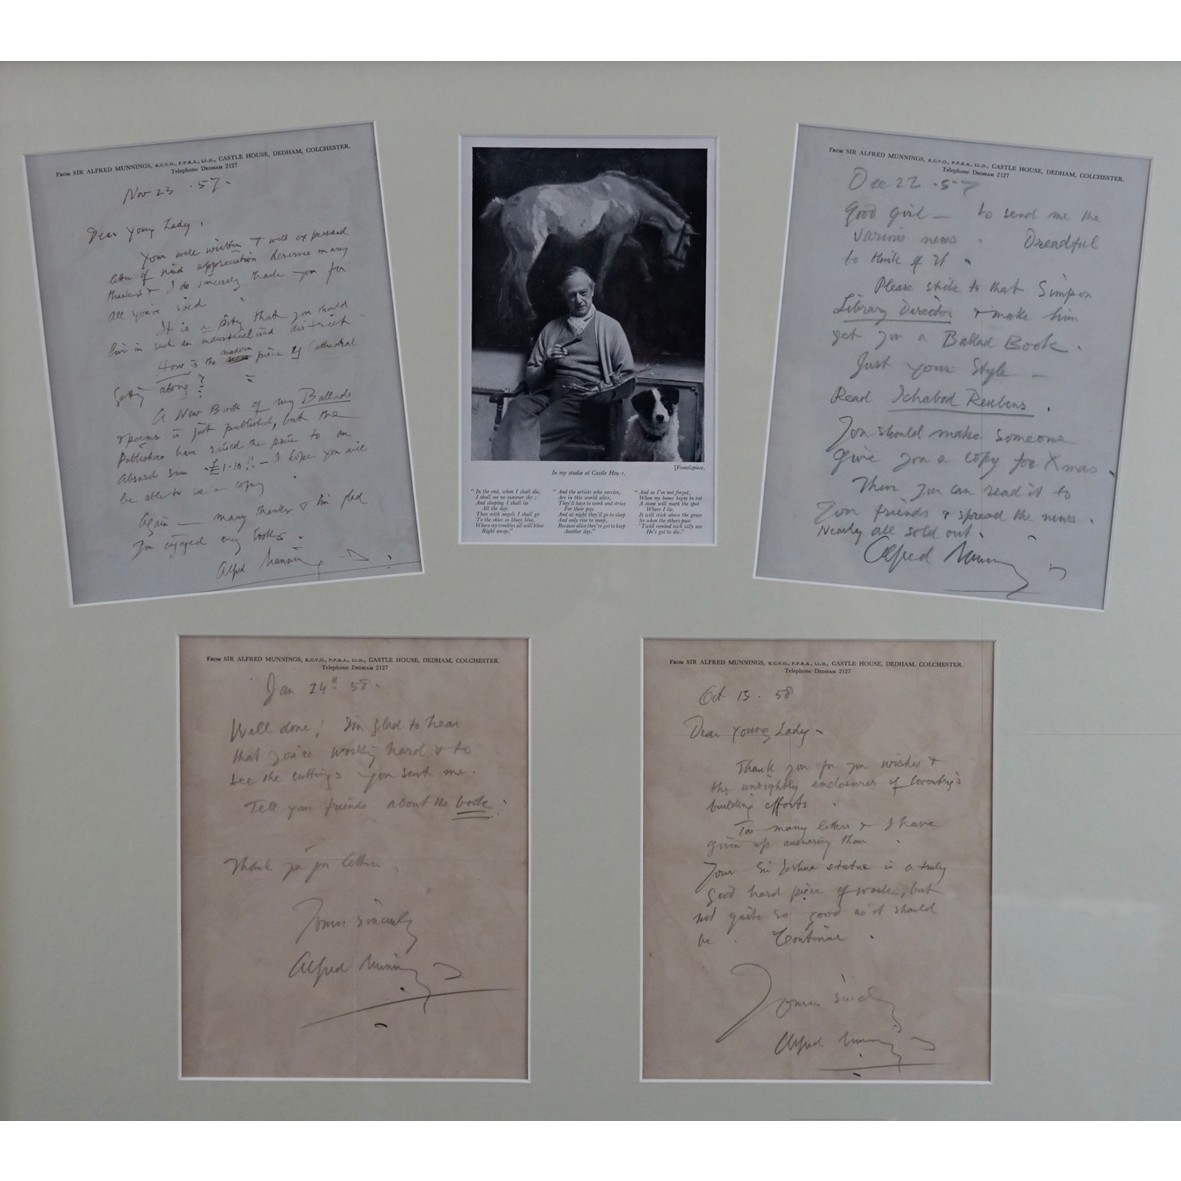 From SIR ALFRED MUNNINGS, K.C.V.O., P.P.R.A., LL.D., CASTLE HOUSE, DEDHAM, COLCHESTER.
Telephone DEDHAM 2127
Nov 23 . 57 .
Dear Young Lady .
Your well written & well expressed
letter of kind appreciation deserves many
thanks & I do sincerely thank you for
all you've said
It is a pity that you should
live in such an industrialised district
How is the modern piece of Cathedral
getting along ?
A New Book of my Ballads
& poems is just published, but the
Publishers have raised the price to an
absurd sum £1.10 !! — I hope you will
be able to see a copy
Again — many thanks & I'm glad
you enjoyed my books .
Alfred Munnings
In my studio at Castle House.
[Frontispiece.
"In the end, when I shall die,
I shall see no summer sky ;
And sleeping I shall lie
All the day.
Then with angels I shall go
To the skies in blues blow,
Where my troubles all will blow
Right away."
"And the artists who survive,
Are in this world alive,
They'll have to work and strive
For their pay.
And at night they'll go to sleep
And only rise to weep,
Because alive they've got to keep
Another day."
"And as I'm not forgot,
When my bones begin to rot
A stone will mark the spot
Where I lie.
It will stick above the grass
So when the others pass
'Twill remind each silly ass
He's got to die."
From SIR ALFRED MUNNINGS, K.C.V.O., P.P.R.A., LL.D., CASTLE HOUSE, DEDHAM, COLCHESTER.
Telephone DEDHAM 2127
Dec 22 . 57
Good girl — to send me the
various news . Dreadful
to think of it .
Please strike to that Simpson
Library Director & make him
get you a Ballad Book .
Just your Style —
Read Ichabod Reubens .
You should make someone
give you a copy for Xmas .
Then you can read it to
your friends & spread the news .
Nearly all sold out .
Alfred Munnings
From SIR ALFRED MUNNINGS, K.C.V.O., P.P.R.A., LL.D., CASTLE HOUSE, DEDHAM, COLCHESTER.
Telephone DEDHAM 2127
Jan 24th 58 .
Well done ! I'm glad to hear
that you're working hard & to
see the cuttings you sent me .
Tell your friends about the book .
Thank you for letter .
Yours sincerely
Alfred Munnings
From SIR ALFRED MUNNINGS, K.C.V.O., P.P.R.A., LL.D., CASTLE HOUSE, DEDHAM, COLCHESTER.
Telephone DEDHAM 2127
Oct 13 . 58
Dear Young Lady .
Thank you for your wishes &
the unsightly enclosures of Coventry's
building efforts .
Too many letters & I have
given up answering them .
Your Sir Joshua statue is a truly
good hard piece of work, but
not quite so good as it should
be . Continue .
Yours sincerely
Alfred Munnings